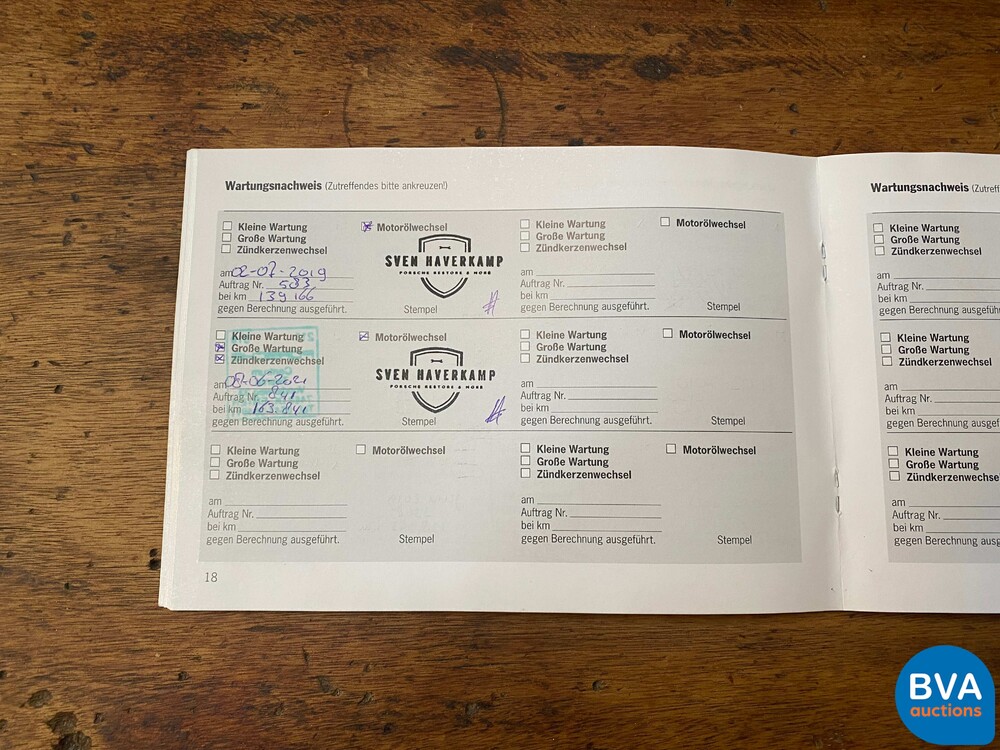 Wartungsnachweis (Zutreffendes bitte ankreuzen!)
Kleine Wartung
Große Wartung
Zündkerzenwechsel
Motorölwechsel
SVEN HAVERKAMP
PORSCHE RESTORE & MORE
am 02-07-2019
Auftrag Nr. 583
bei km 139166
gegen Berechnung ausgeführt.
Stempel
Kleine Wartung
Große Wartung
Zündkerzenwechsel
Motorölwechsel
am
Auftrag Nr.
bei km
gegen Berechnung ausgeführt.
Stempel
Kleine Wartung
Große Wartung
Zündkerzenwechsel
Motorölwechsel
SVEN HAVERKAMP
PORSCHE RESTORE & MORE
am 08-06-2021
Auftrag Nr. 841
bei km 163.841
gegen Berechnung ausgeführt.
Stempel
Kleine Wartung
Große Wartung
Zündkerzenwechsel
Motorölwechsel
am
Auftrag Nr.
bei km
gegen Berechnung ausgeführt.
Stempel
Kleine Wartung
Große Wartung
Zündkerzenwechsel
Motorölwechsel
am
Auftrag Nr.
bei km
gegen Berechnung ausgeführt.
Stempel
Kleine Wartung
Große Wartung
Zündkerzenwechsel
Motorölwechsel
am
Auftrag Nr.
bei km
gegen Berechnung ausgeführt.
Stempel
18
Wartungsnachweis
Kleine Wartung
Große Wartung
am
Auftrag Nr.
bei km
Kleine Wartung
Große Wartung
am
Auftrag Nr.
bei km
Kleine Wartung
Große Wartung
am
Auftrag Nr.
bei km
gegen Berechnung
BVA
auctions